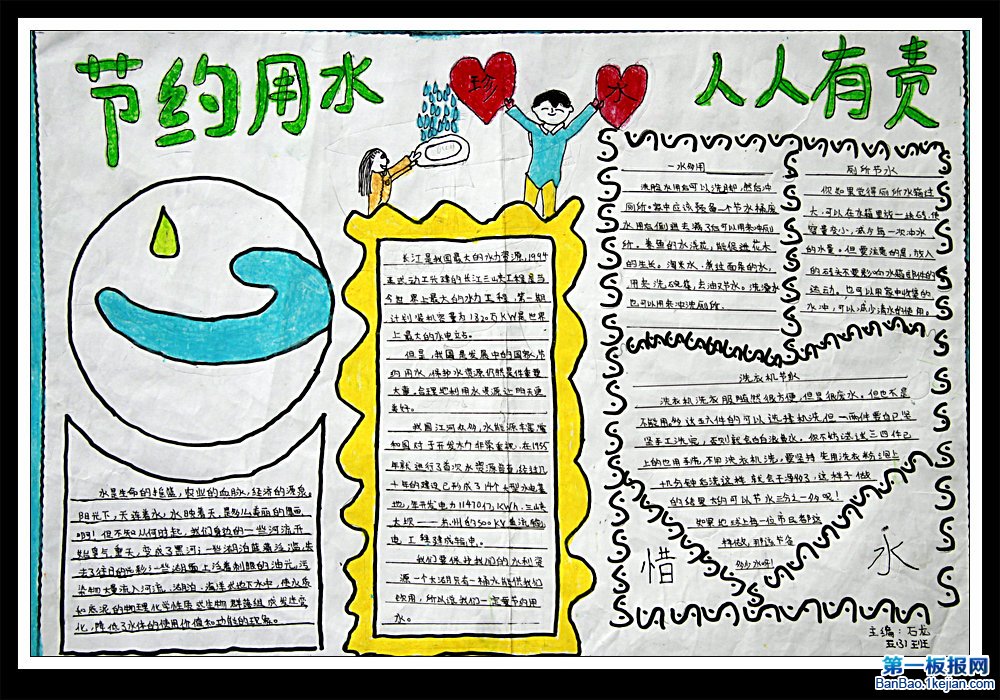 节约用水
珍
水
人人有责
一水多用
洗脸水用后可以洗脚,然后冲
厕所。家中应该预备一个节水桶
所。养鱼的水浇花,能促进花木
的生长。淘米水、煮过面条的水,
用来洗碗筷,去油又节水。洗澡水
也可以用来冲洗厕所。
厕所节水
你如果觉得厕所水箱过
大,可以在水箱里放一块砖,使
容量变小,减少每一次冲水
的水量。但要注意的是,放入
的砖头不要影响水箱部件的
运动。也可以用家中收集的
水冲,可以减少清水的使用。
洗衣机节水
洗衣机洗衣服虽然很方便,但是很废水。但也不是
不能用。
坚手工洗完,否则就会白白浪费水。
上的也用手洗,不用洗衣机洗,要坚持
的结果大约可以节水三分之一的呢!
如果地球上每一位市民都这
样做,那该节省
多少水呀!
惜
水
长江是我国最大的水力资源,1994
正式动工兴建的长江三峡工程是当
今世界上最大的水力工程,第一期
计划装机容量为1820万KW是世界
上最大的水电站。
但是,我国是发展中的国家,节
约用水,保护水资源仍然是件重要
大事。合理地利用水资源让明天更
美好。
我国江河众多,水能源丰富
和国对于开发水力非常重视,在1955
年就进行了首次水资源普查,经过几
十年的建设已形成了14个大型水电基
地,年开发电力114704万KWh.三峡
大坝——苏州的500KV直流输
电工程建成输电。
我们要保护我们的水利资
源一个大湖只有一桶水能供我们
饮用,所以说我们一定要节约用
水。
水是生命的摇篮,农业的血脉,经济的源泉。
阳光下,天连着水,水映着天,是多么美丽的画面
啊!但不知从何时起,我们身边的一些河流开
始臭气熏天,变成了黑河;一些湖泊蓝藻泛滥,失
去了往日的光彩;一些湖面上浮着刺眼的油元。污
染物大量流入河流、湖泊、海洋或地下水中,使水质
和底泥的物理化学性质或生物群落组成发生变
化,降低了水体的使用价值和功能的现象。
主编:石龙
五(3)班
第一板报网
BanBao.1kejian.com